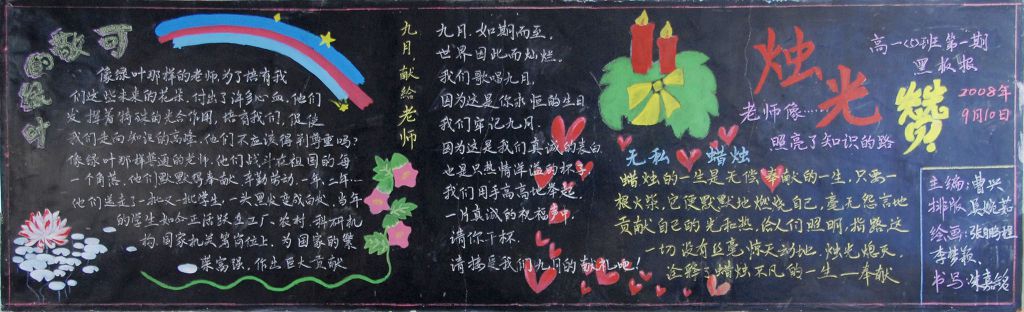 可敬的绿叶
像绿叶那样的老师,为了培育我
们这些未来的花朵,付出了许多心血,他们
发挥着特殊的光合作用,培育我们,促使
我们走向知识的高峰,他们不应该得到尊重吗?
像绿叶那样普通的老师,他们战斗在祖国的每
一个角落,他们默默无奉献,辛勤劳动,一年,二年…
他们送走了一批又一批学生,一头黑发变成白发,当年
的学生如今正活跃在工厂、农村、科研机
构、国家机关等岗位上,为国家的繁
荣富强,作出巨大贡献
九月,献给老师
九月,如期而至,
世界因此而灿烂,
我们歌唱九月,
因为这是你永恒的生日
我们牢记九月,
因为这是我们真诚的表白
也是只热情洋溢的杯子
我们用手高高地举起,
一片真诚的祝福声中
请你干杯,
请接受我们九月的献礼吧!
烛光赞
高一(5)班第一期
黑板报
2008年
9月10日
老师像……
照亮了知识的路
无私 蜡烛
蜡烛的一生是无偿奉献的一生,只要一
根火柴,它便默默地燃烧自己,毫无怨言地
贡献自己的光和热,给人们照明,指路这
一切没有丝毫惊天动地,烛光熄灭,
诠释了蜡烛不凡的一生——奉献
主编:曹兴
排版:吴婉茹
绘画:张鹏程
李梦颖、
书写:朱嘉铭